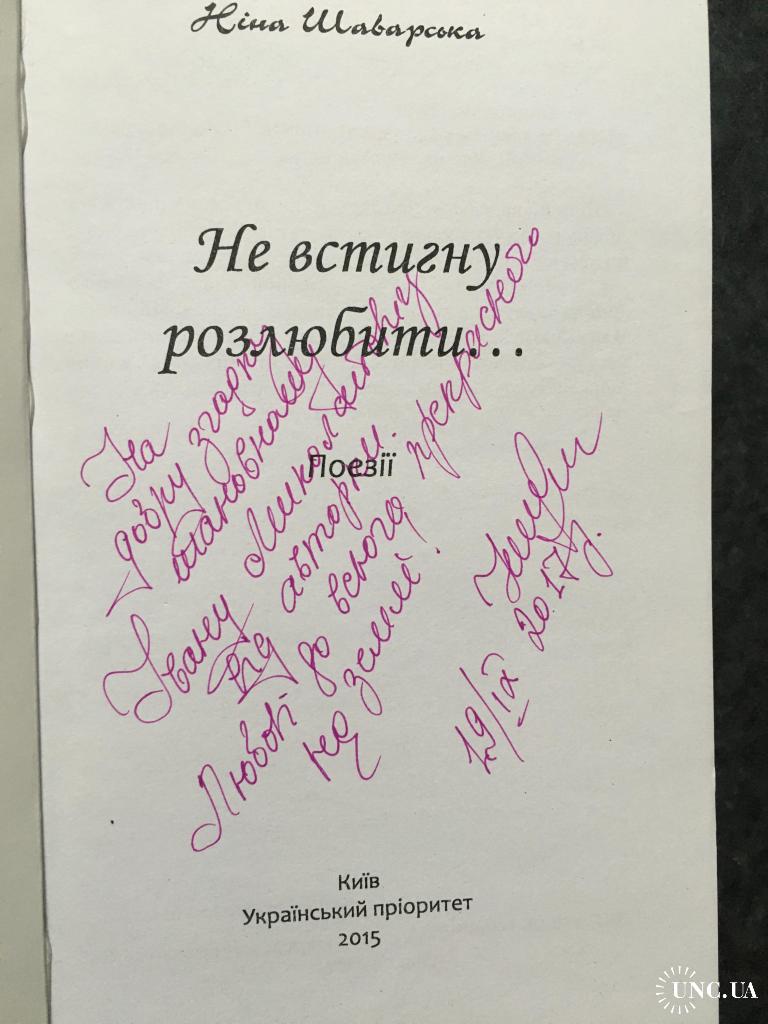 Ніна Шаварська
Не встигну
розлюбити...
Поезії
На
добру згадку
шановному
Івану Миколайовичу
від авторки.
Любові до всього прекрасного
на землі!
19/IX 2017р.
Київ
Український пріоритет
2015
UNC.UA